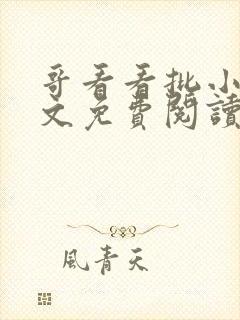 哥看看批小
文免費閱讀
風青天